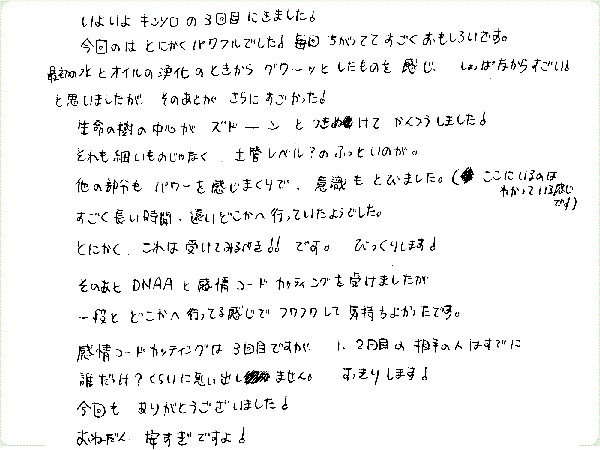 いよいよ キンソロ の 3回目 にきました!
今回のは とにかく パワフルでした! 毎回 ちがってて すごく おもしろいです。
最初の水とオイルの浄化のときから グワーッと したものを 感じ、 しょっぱなから すごい!
と 思いましたが、 そのあとが さらに すごかった!
生命の樹の中心が ズドーン と つきぬけて かくつうしました!
それも 細いものじゃなく、土管レベル?の ふっといのが。
他の部分も パワーを 感じまくりで、 意識も とびました。( ここにいるのは わかっている感じ です)
すごく 長い 時間、遠い どこかへ 行っていたようでした。
とにかく、これは 受けてみるべき!! です。 びっくりします!
そのあと DNAA と 感情コード カッティングを 受けましたが
一段と どこかへ 行ってる 感じで フワフワして 気持ちよかったです。
感情コードカッティングは 3回目ですが 1、2回目の 相手の人は すでに
誰だっけ?くらいに 思い出し ません。 すっきりします!
今回も ありがとうございました!
おねだん 安すぎ ですよ!